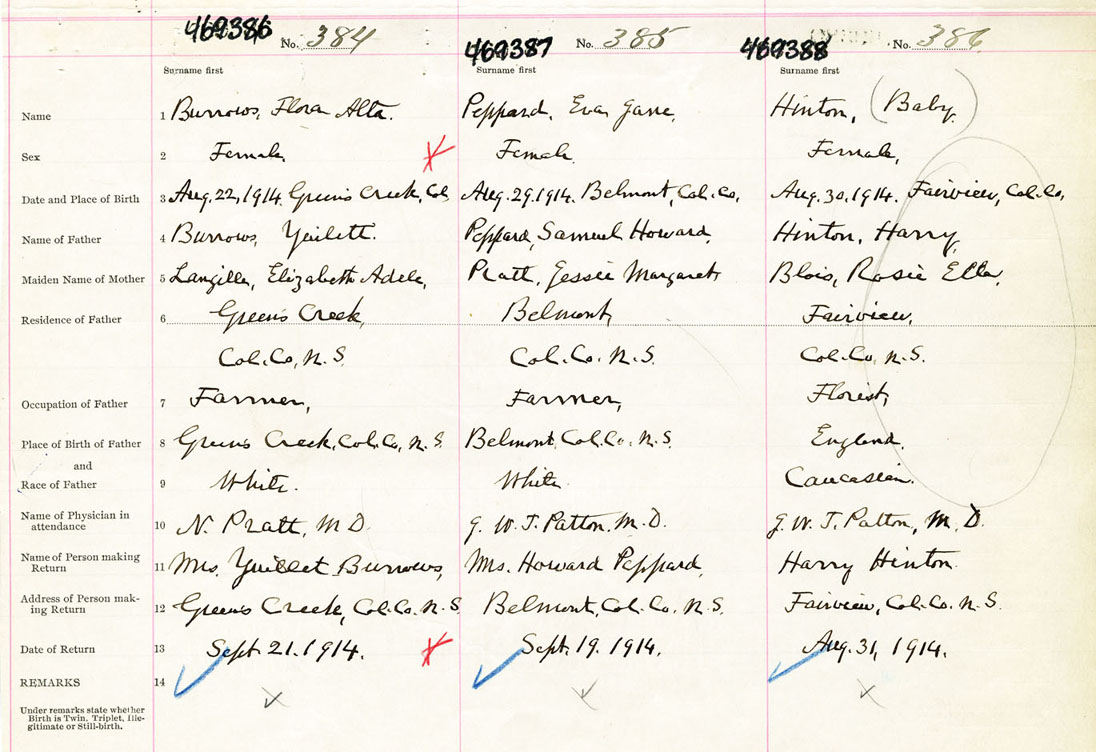 469386 No. 384 469387 No. 385 469388 No. 386
Surname first Surname first Surname first
Name 1 Burrows, Flora Alta. Peppard, Eva Jane, Hinton, (Baby)
Sex 2 Female, Female. Female,
Date and Place of Birth 3 Aug. 22, 1914 Greens Creek, Col Aug. 29. 1914. Belmont, Col. Co, Aug. 30. 1914. Fairview, Col. Co,
Name of Father 4 Burrows, Yuilett. Peppard, Samuel Howard, Hinton, Harry,
Maiden Name of Mother 5 Langille, Elizabeth Adele, Pratt, Jessie Margaret Blois, Rosie Ella,
Residence of Father 6 Greens Creek, Belmont, Fairview,
Col. Co, N. S. Col. Co. N. S. Col. Co, N. S.
Occupation of Father 7 Farmer, Farmer, Florist,
Place of Birth of Father 8 Greens Creek, Col. Co, N. S. Belmont, Col. Co. N. S. England.
and
Race of Father 9 White. White Caucasian.
Name of Physician in
attendance 10 N. Pratt, M. D. J. W. T. Patton, M. D. J. W. T. Patton, M. D.
Name of Person making
Return 11 Mrs. Yuillet Burrows, Mrs. Howard Peppard, Harry Hinton
Address of Person mak-
ing Return 12 Greens Creek, Col. Co. N. S. Belmont, Col. Co. N. S. Fairview, Col. Co. N. S.
Date of Return 13 Sept. 21. 1914. Sept. 19. 1914. Aug. 31, 1914.
REMARKS 14
Under remarks state whether
Birth is Twin, Triplet, Ille-
gitimate or Still-birth.